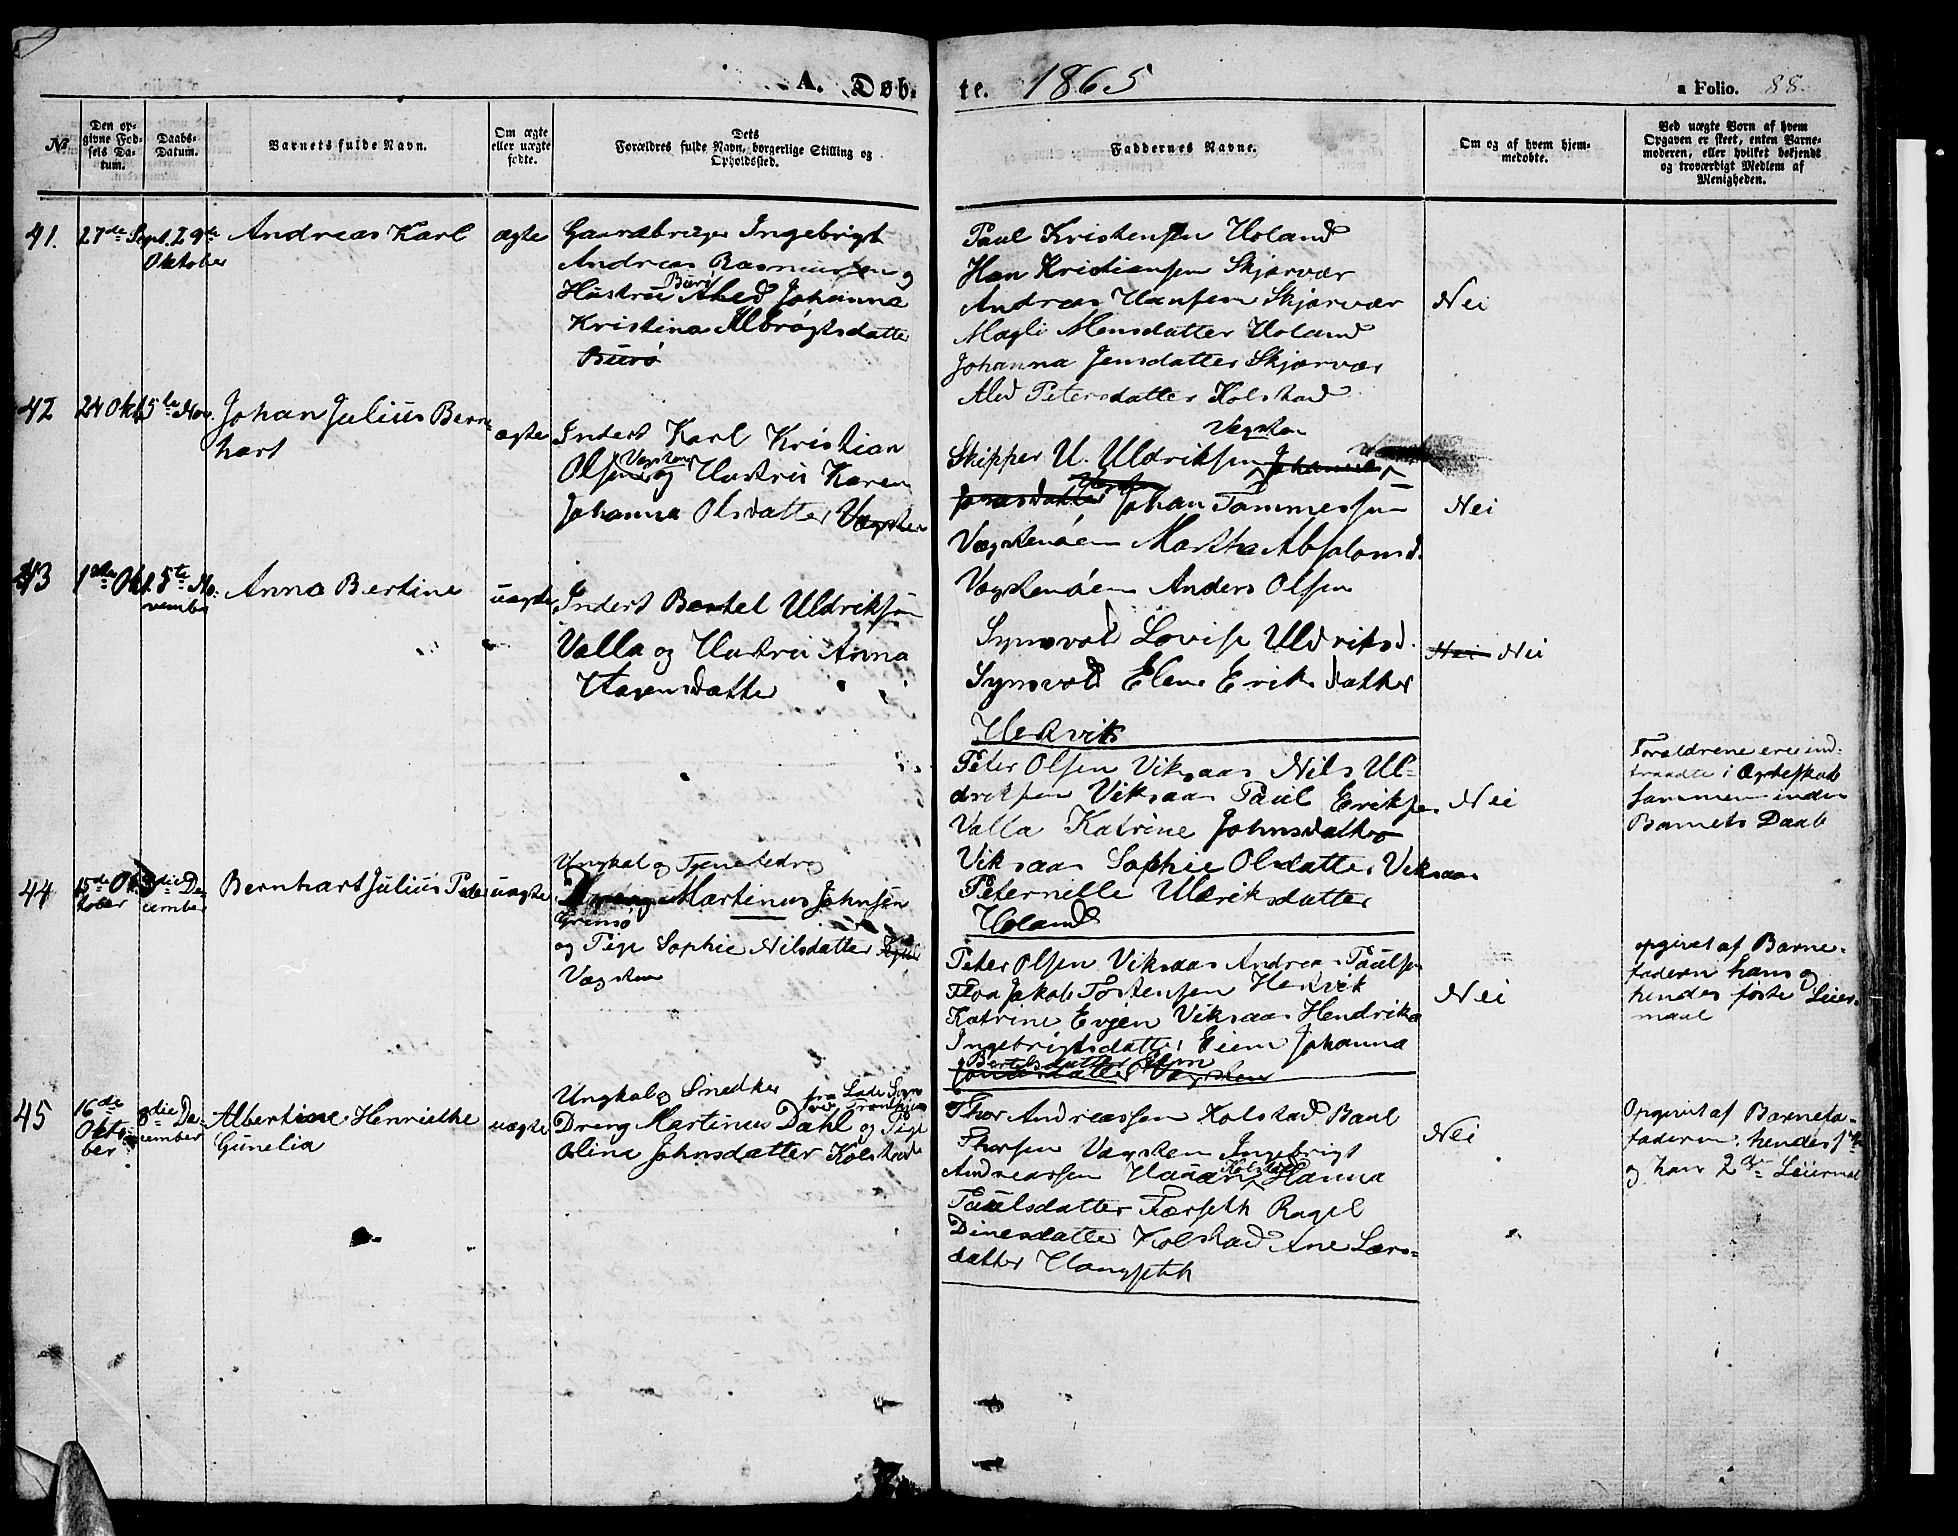 A. Døb-
te. 1865
a Folio. 88.
№
Den op-
givne Fød-
sels Da-
tum.
Daabs-
Datum.
Barnets fulde Navn.
Om ægte
eller uægte
fødte.
Dets
Forældres fulde Navn, borgerlige Stilling og
Opholdssted.
Faddernes Navne.
Om og af hvem hjem-
medøbte.
Ved uægte Børn af hvem
Opgaven er skeet, enten Barne-
moderen, eller hvilket bekjendt
og troværdigt Medlem af
Menigheden.
41.
27de Sept.
29de
Oktober
Andreas Karl
ægte
Gaardbruger Ingebrigt
Andreas Rasmussen og
Burø
Hustru Ahed Johanna
Kristina Albrøgtsdatter
Burø
Paul Kristensen Holand
Han Kristiansen Skjærvær
Andreas Hansen Skjærvær
Magli Monsdatter Holand
Johanna Jensdatter Skjærvær
Aled Petersdatter Kolstad
Nei
42
24 Okt.
5te Nov.
Johan Julius Bern-
hart
ægte
Inderst Karl Kristian
Vægsten
Olsen og Hustru Karen
Johanna Olsdatter Vægsten
Vægsten
Skipper U. Uldriksen Johanna
Jonasdatter Johan Tommessen
Vægstenøen Martha Absalonsd.
Vægstenøen Anders Olsen
Symsvold Lovise Uldriksd.
Symsvold Elen Eriksdatter
Hekvik
Nei
43
1ste Okt.
5te No-
vember
Anna Bertine
uægte
Inderst Bertel Uldriksen
Valla og Hustru Anna
Hagensdatter
Nei Nei
Peter Olsen Viksaas Nils Ul-
driksen Viksaas Paul Eriksen
Valla Katrine Johnsdatter
Viksaas Sophie Olsdatter Viksaas
Peternille Uldriksdatter
Holand
Nei
Forældrene ere ind-
traadte i Ægteskab
sammen inden
Barnets Daab
44
15de Ok-
tober
3die De-
cember
Bernhart Julius Peder
uægte
Ungkal og Tjenestedreng
Martinus Johnsen
Grimsø
og Pige Sophie Nilsdatter
Vægsten
Peter Olsen Viksaas Andreas Paulsen
Floa Jakob Tostensen Hekvik
Katrine Evgen Viksaas Hendrika
Ingebrigtsdatter Eiem Johanna
Bertelsdatter Eiem
Jonasdatter Vægsten
Nei
opgivet af Barne-
faderen hans og
hendes første Leier-
maal
45
16de
Okto-
ber
3die De-
cember
Albertine Henriette
Gunelia
uægte
Ungkal og Snedker
fra Lade Sogn
ved Trondhjem
Dreng Martinus Dahl og Pige
Olina Johnsdatter Kolstad
Thor Andreassen Kolstad Paul
Thorsen Vægsten Ingebrigt
Kolstad
Andreassen Hanna
Paulsdatter Færseth Ragel
Dinesdatter Kolstad Ane Lars-
datter Hangseth
Nei
Opgivet af Barnefa-
faderen: hendes 1ste
og hans 2den Leiermal